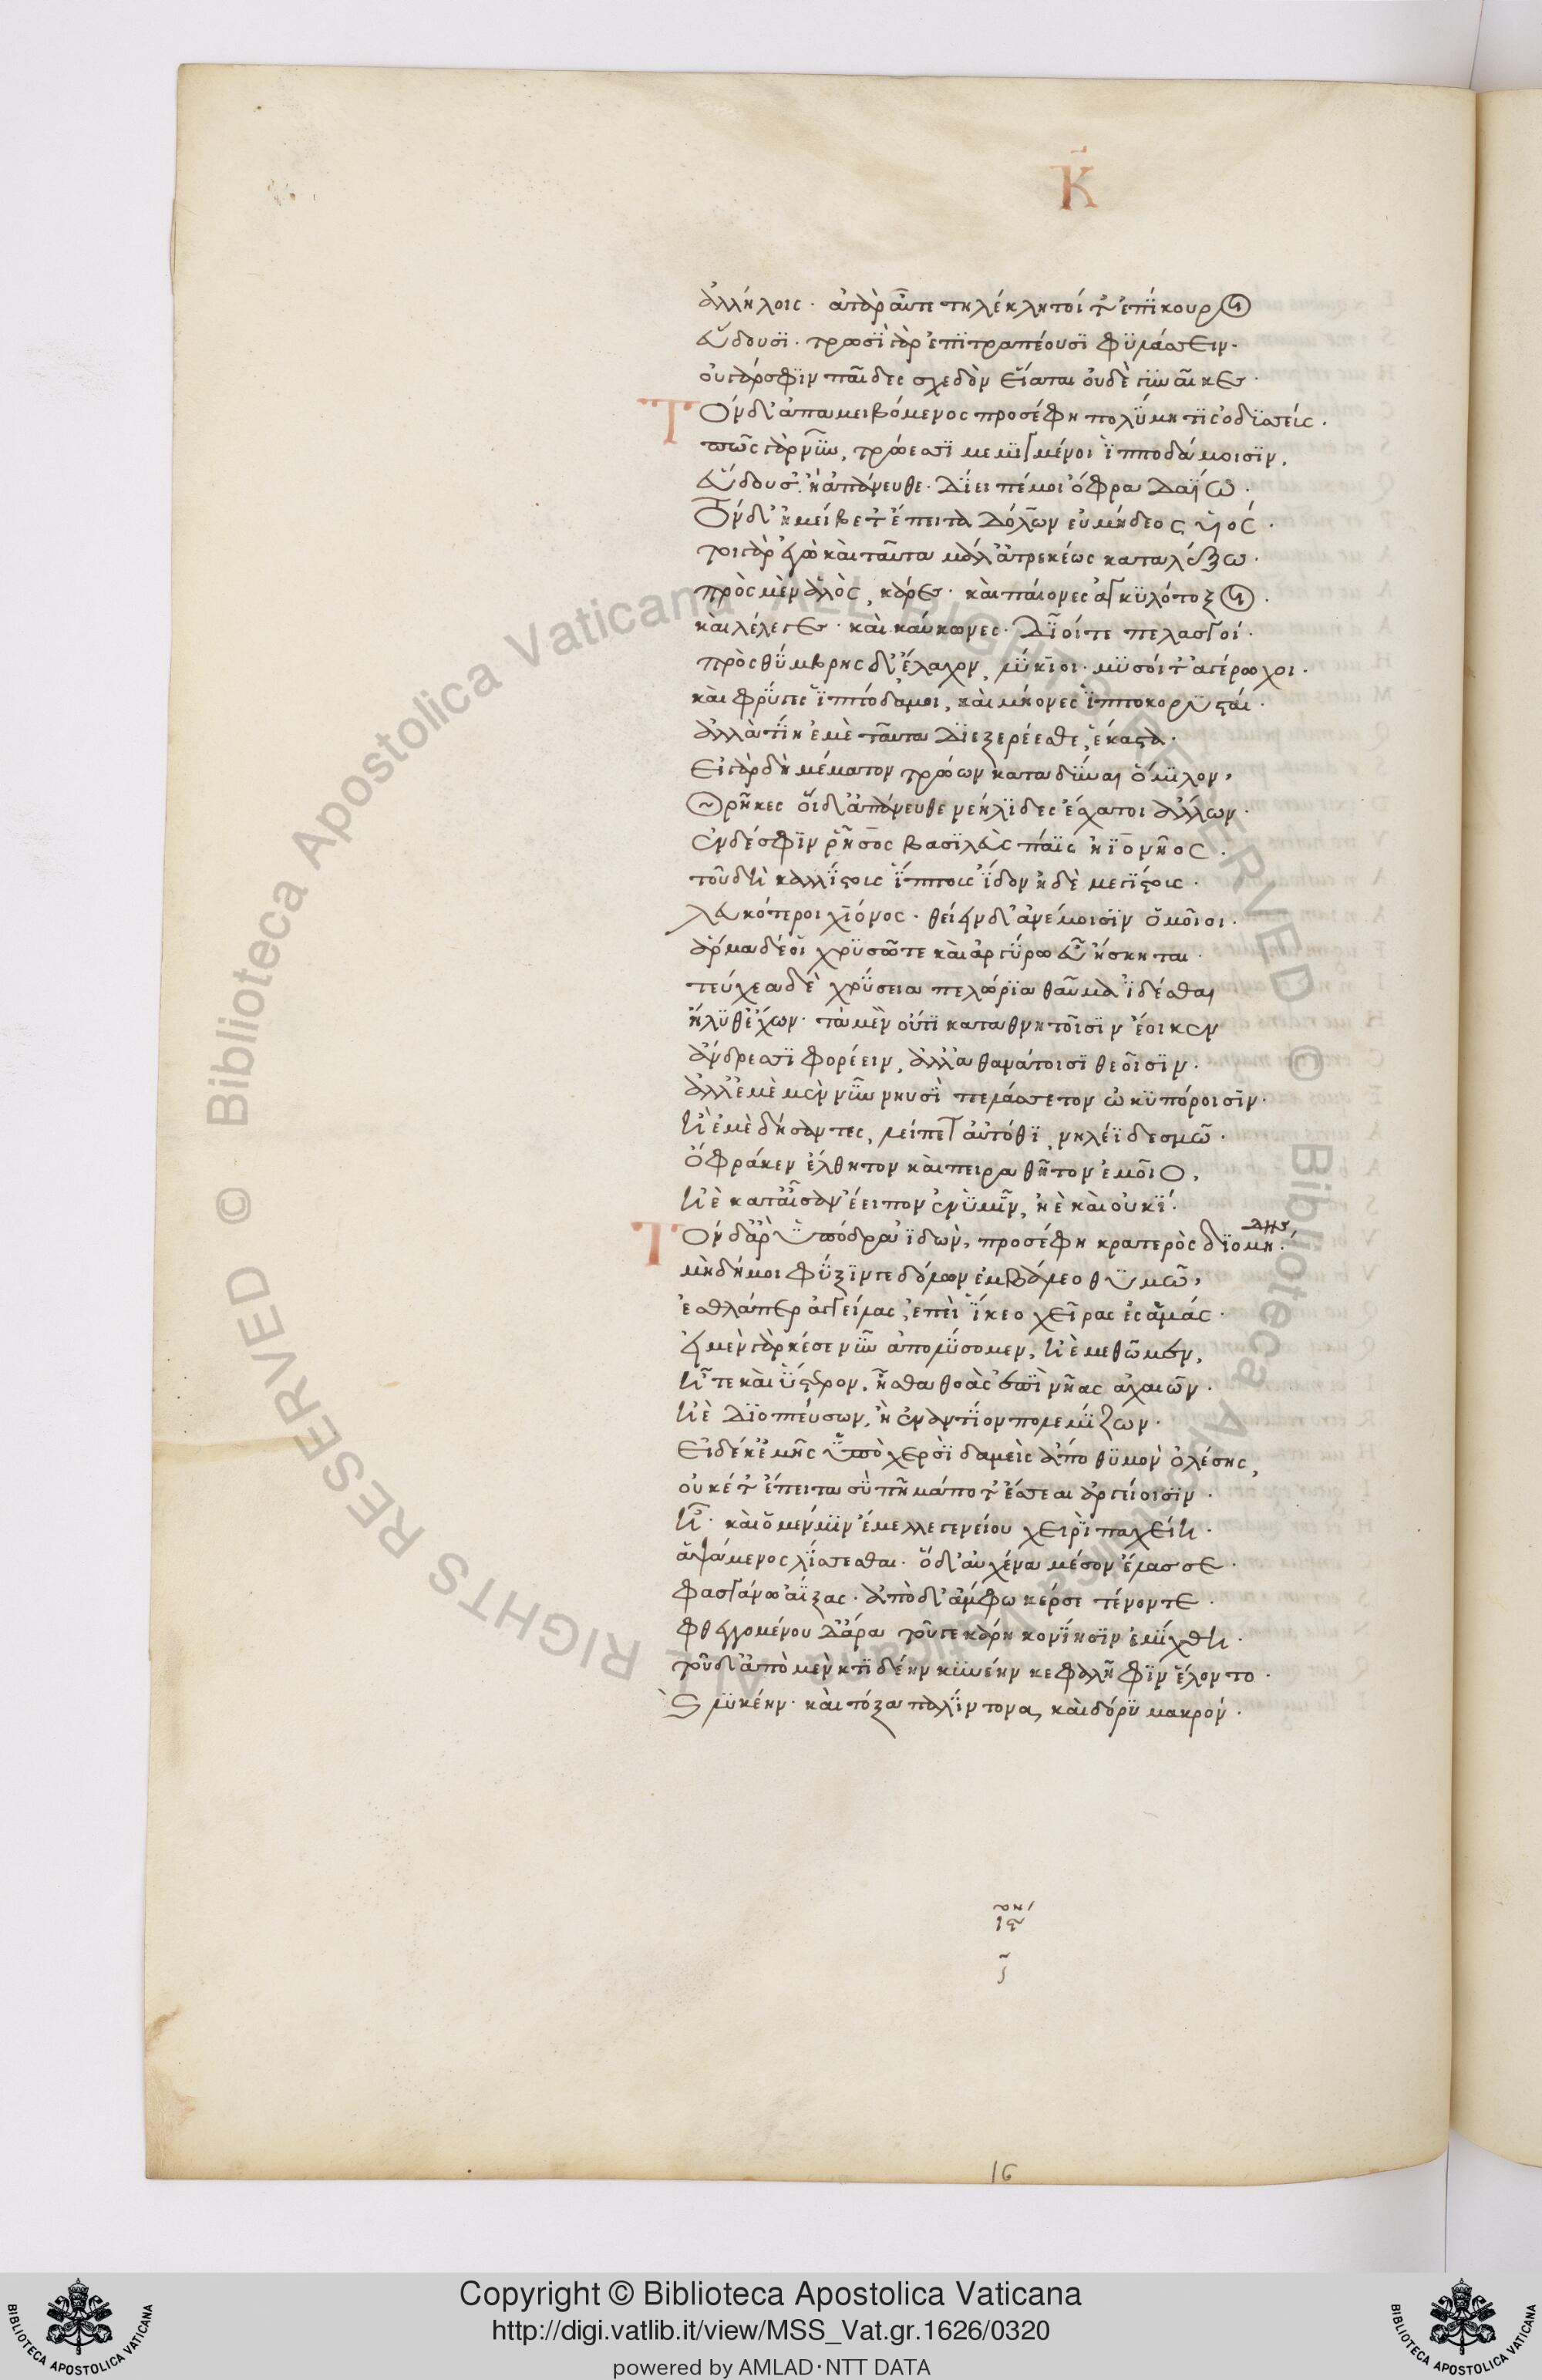 Κ̄
ἀλλήλοις· ἀτὰρ αὖτε τηλέκλητοί τ' ἐπίκουροι
εὕδουσι· τρωσὶ γὰρ ἐπιτραπέουσι φυλάσσειν·
οὐ γάρ σφιν παῖδες σχεδὸν εἵαται οὐδὲ γυναῖκες·
Τὸν δ' ἀπαμειβόμενος προσέφη πολύμητις ὀδυσσεύς·
πῶς γὰρ νῦν, τρώεσσι μεμιγμένοι ἱπποδάμοισιν,
εὕδουσ'. ἢ ἀπάνευθε· δίειπέ μοι ὄφρα δαείω·
Τὸν δ' ἠμείβετ' ἔπειτα δόλων εὐμήδεος υἱός·
τοὶ γὰρ ἐγὼ καὶ ταῦτα μάλ' ἀτρεκέως καταλέξω·
πρὸς μὲν ἁλὸς, κάρες· καὶ παίονες ἀγκυλότοξοι·
καὶ λέλεγες· καὶ καύκωνες· δῖοί τε πελασγοί·
πρὸς θύμβρης δ' ἔλαχον, λύκιοι· μυσοί τ' ἀγέρωχοι·
καὶ φρύγες ἱππόδαμοι, καὶ μήονες ἱπποκορυσταί·
ἀλλὰ τίη ἐμὲ ταῦτα διεξερέεσθε, ἕκαστα·
Εἰ γὰρ δὴ μέματον τρώων καταδῦναι ὅμιλον,
Θρῆκες οἵδ' ἀπάνευθε νεήλυδες ἔσχατοι ἄλλων·
ἐν δέ σφιν ῥῆσος βασιλεὺς πάϊς ἠϊονῆος·
τοῦ δὴ καλλίστοις ἵπποις ἴδον ἠδὲ μεγίστοις·
λευκότεροι χιόνος· θείειν δ' ἀνέμοισιν ὁμοῖοι·
ἅρμα δέ οἱ χρυσῶτε καὶ ἀργύρω εὖ ἤσκηται·
τεύχεα δὲ χρύσεια πελώρια θαῦμα ἰδέσθαι
ἤλυθ' ἔχων· τὰ μὲν οὔτι καταθνητοῖσιν ἔοικεν
ἄνδρεσσι φορέειν, ἀλλ' ἀθανάτοισι θεοῖσιν·
ἀλλ' ἐμὲ μὲν νῦν νηυσὶ πελάσσετον ὠκυπόροισιν·
ἠὲ ἐμὲ δήσαντες, λείπετ' αὐτόθι, νηλέϊ δεσμῶ·
Ὄφρά κεν ἔλθητον καὶ πειραθῆτον ἐμοῖο,
ἠὲ κατ' αἶσαν ἔειπον ἐν ὑμῖν, ἠὲ καὶ οὐκί·
Τὸν δ' ἄρ' ὑπόδρα ἰδὼν, προσέφη κρατερὸς διομήδης·
μὴ δή μοι φύξιν γε δόλων ἐμβάλεο θυμῶ,
ἐσθλά περ ἀγγείλας, ἐπεὶ ἵκεο χεῖρας ἐς ἁμάς·
εἰ μὲν γάρ κέ σε νῦν ἀπολύσομεν, ἠὲ μεθῶμεν,
ἦ τε καὶ ὕστερον, εἶσθα θοὰς ἐπὶ νῆας ἀχαιῶν·
ἠὲ διοπεύσων, ἢ ἐναντίον πολεμίζων·
Εἰ δέ κ' ἐμῆς ὑπὸ χερσὶ δαμεὶς ἀπὸ θυμὸν ὀλέσης,
οὐκέτ' ἔπειτα σὺ πῆμά ποτ' ἔσσεαι ἀργείοισιν·
Ἦ· καὶ ὁ μέν μιν ἔμελλε γενείου χειρὶ παχείη·
ἁψάμενος λίσσεσθαι· ὁ δ' αὐχένα μέσον ἔλασσε·
φασγάνω ἀΐξας· ἀπὸ δ' ἄμφω κέρσε τένοντε·
φθεγγομένου δ' ἄρα τοῦγε κάρη κονίησιν ἐμίχθη·
τοῦ δ' ἀπὸ μὲν κτιδέην κυνέην κεφαλῆφιν ἕλοντο·
καὶ λυκέην· καὶ τόξα παλίντονα, καὶ δόρυ μακρόν·
16
Biblioteca Apostolica Vaticana ALL RIGHTS RESERVED © Biblioteca Apostolica Vaticana ALL RIGHTS RESERVED ©
Copyright © Biblioteca Apostolica Vaticana
http://digi.vatlib.it/view/MSS_Vat.gr.1626/0320
powered by AMLAD·NTT DATA
BIBLIOTECA APOSTOLICA VATICANA
BIBLIOTECA APOSTOLICA VATICANA